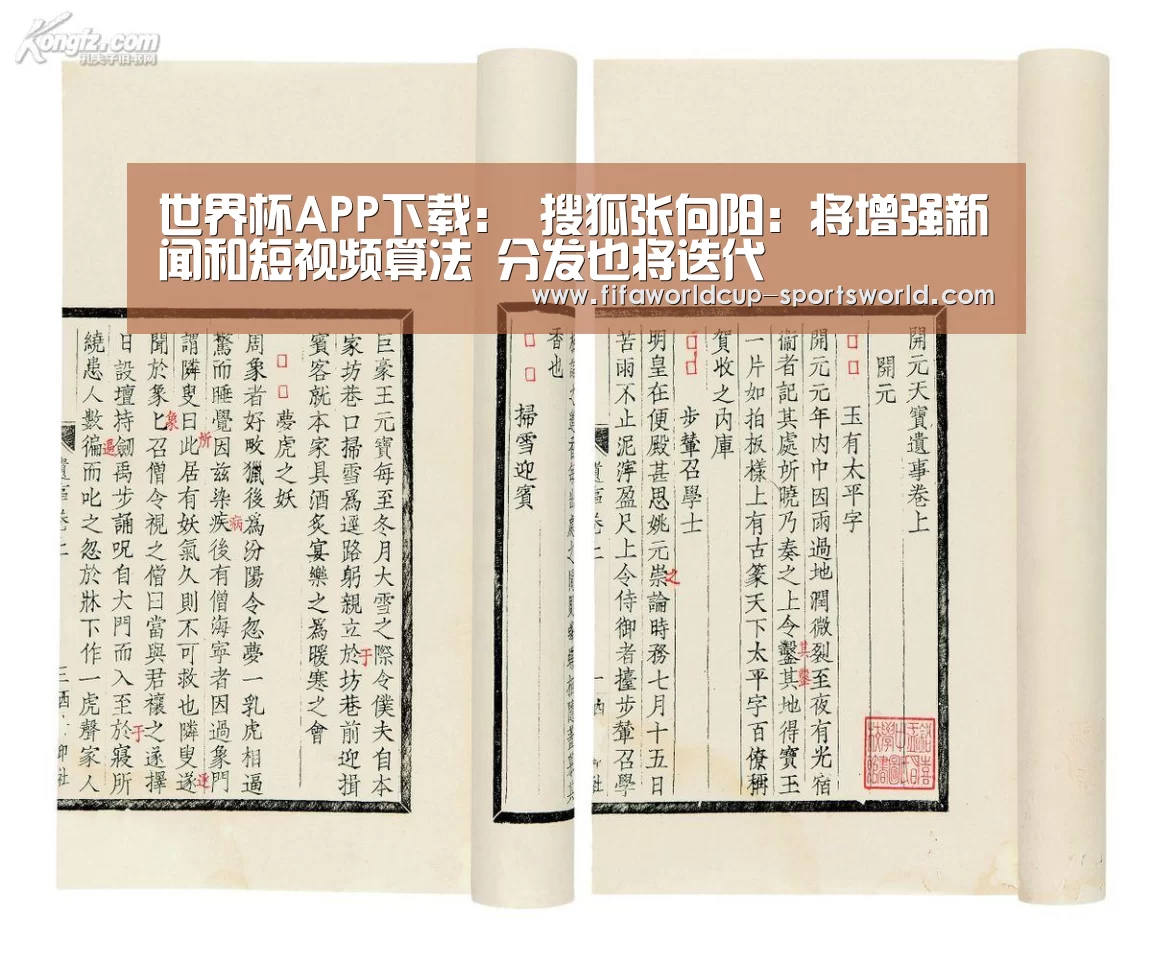 Kongfz.com
孔夫子旧书网
世界杯APP下载： 搜狐张向阳：将增强新
闻和短视频算法 分发也将迭代
www.fifaworldcup-sportsworld.com
開元天寶遺事卷上
開元
玉有太平字
開元元年內中因雨過地潤微裂至夜有光宿
衞者記其處所曉乃奏之上令鑿其地得寶玉
其鑿
一片如拍板樣上有古篆天下太平字百僚稱
賀收之內庫
步輦召學士
明皇在便殿甚思姚元崇論時務七月十五日
之
苦雨不止泥濘盈尺上令侍御者擡步輦召學
遺事卷上
香也
掃雪迎賓
巨豪王元寶每至冬月大雪之際令僕夫自本
家坊巷口掃雪爲逕路躬親立於坊巷前迎揖
于
賓客就本家具酒炙宴樂之爲暖寒之會
夢虎之妖
周象者好畋獵後爲汾陽令忽夢一乳虎相逼
驚而睡覺因兹染疾後有僧海寧者因過象門
病
謂隣叟曰此居有妖氣久則不可救也隣叟遂
所
逐
聞於象匕召僧令視之僧曰當與君禳之遂擇
象
日設壇持劔禹步誦呪自大門而入至於寢所
于
繞患人數徧而叱之忽於牀下作一虎聲家人
遍